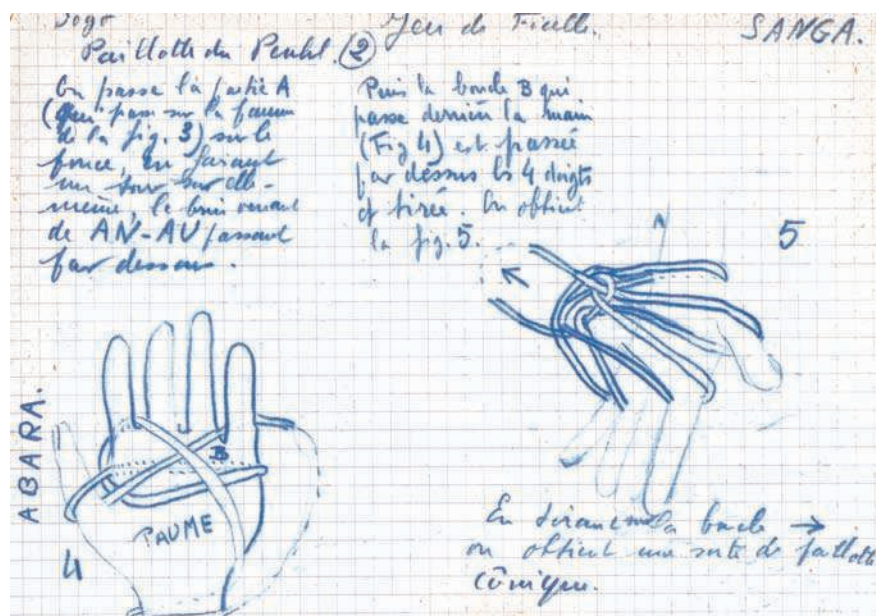 Jeu de Ficelle.
SANGA.
Paillotte du Peuhl. (2)
On passe la partie A
(qui passe sur la paume
de la fig. 3) sur le
pouce, en faisant
un tour sur elle-
même, le brin venant
de AN-AU passant
par dessous.
Puis la boucle B qui
passe derrière la main
(Fig 4) est passée
par dessus les 4 doigts
et tirée. On obtient
la fig. 5.
5
ABARA.
B
PAUME
4
En tirant la boucle →
on obtient une sorte de paillotte
cônique.